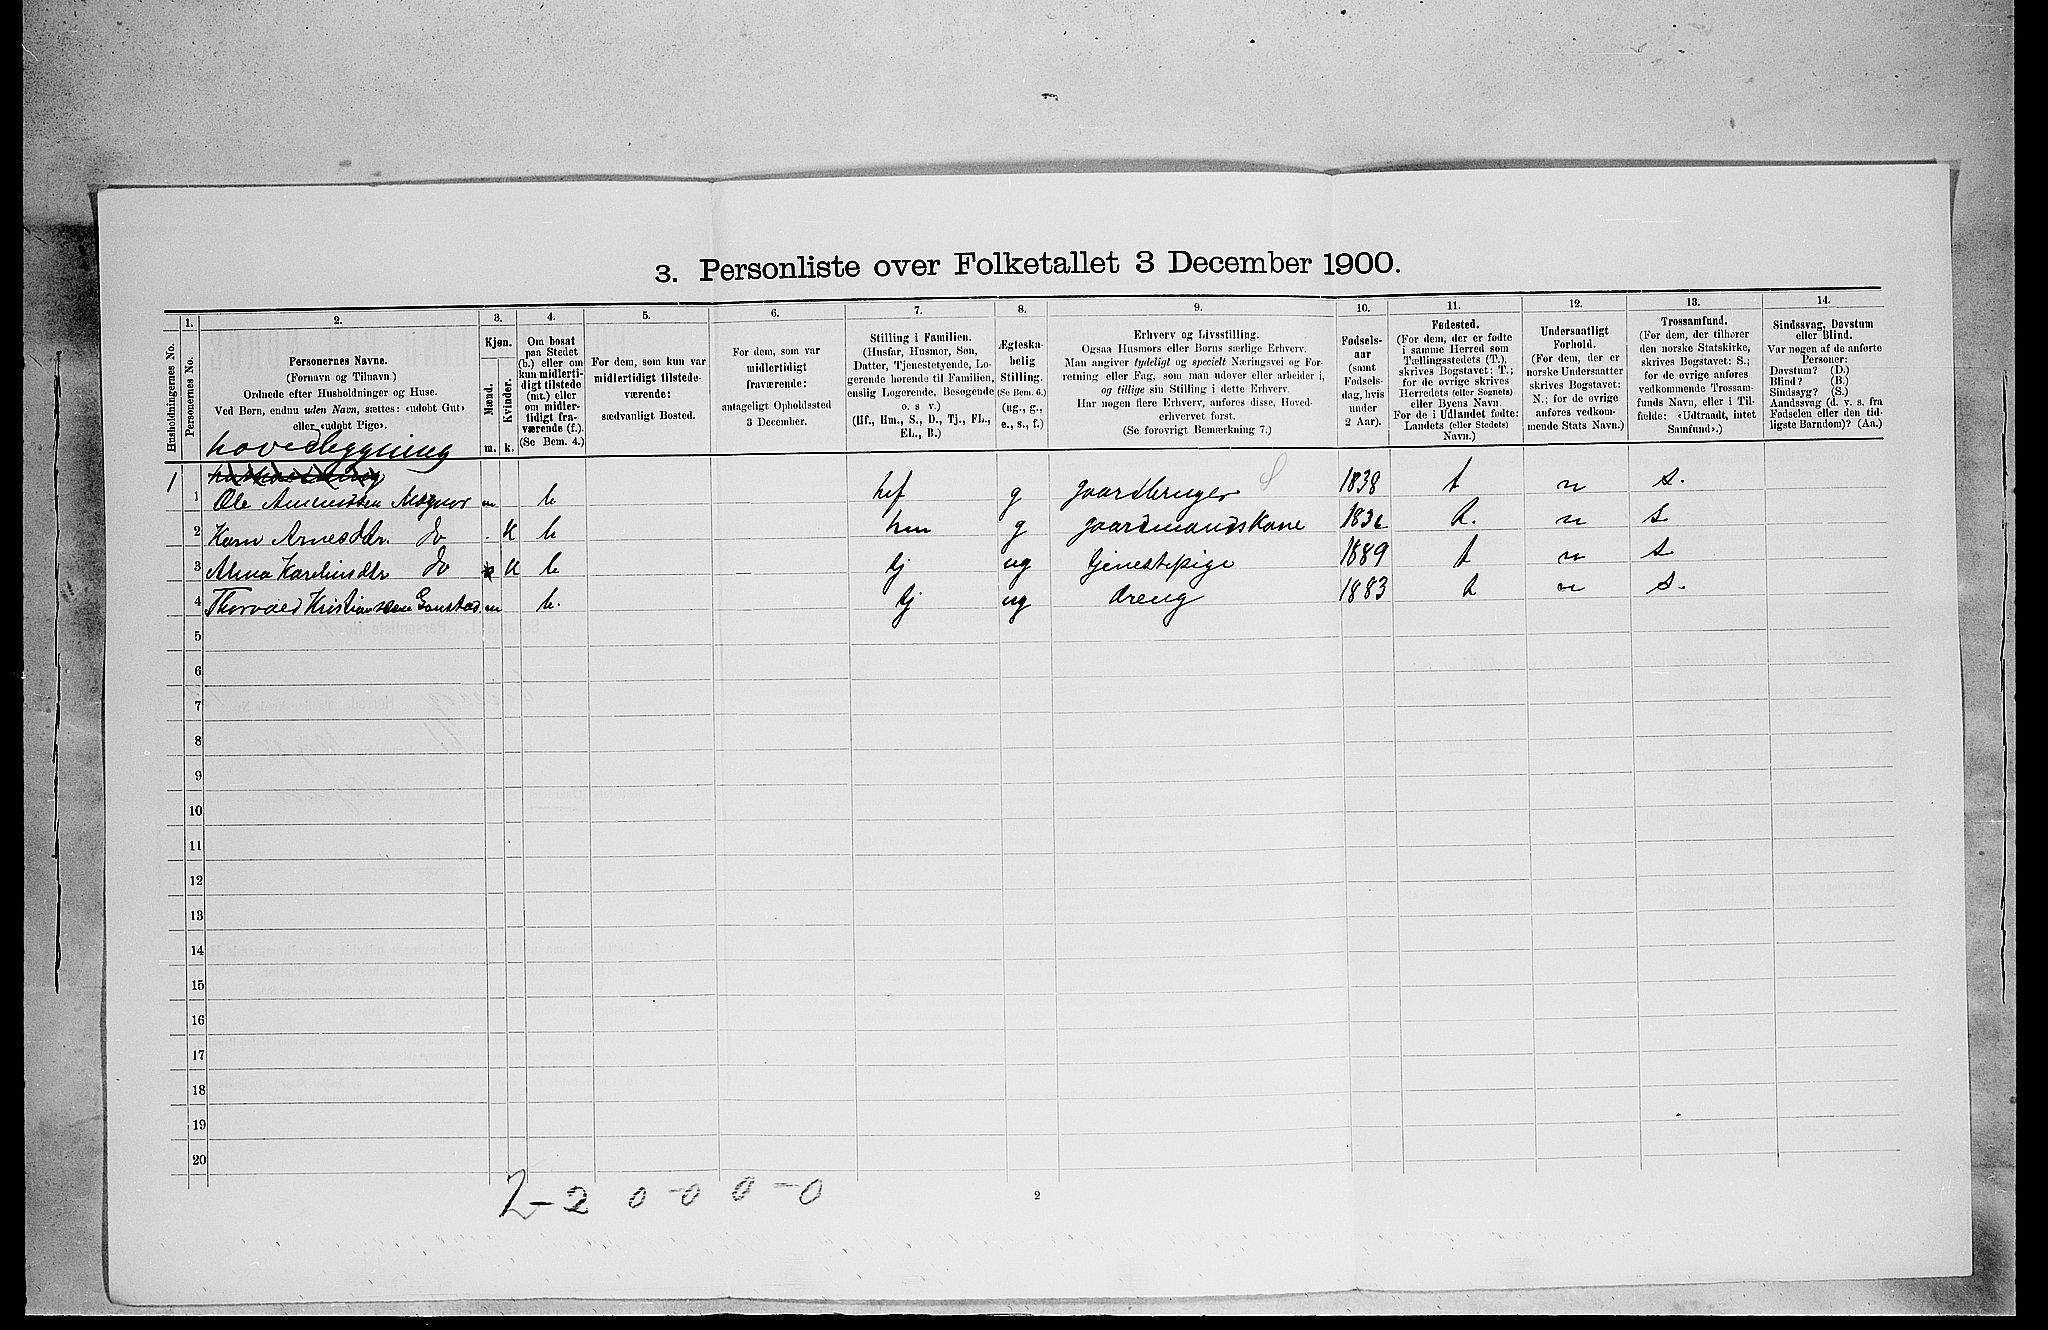 3. Personliste over Folketallet 3 December 1900.
Husholdningernes No.
1.
Personernes No.
2.
Personernes Navne.
(Fornavn og Tilnavn.)
Ordnede efter Husholdninger og Huse.
Ved Børn, endnu uden Navn, sættes: «udøbt Gut»
eller «udøbt Pige».
3.
Kjøn.
Mænd.
Kvinder.
m. k.
4.
Om bosat
paa Stedet
(b.) eller om
kun midlerti-
digt tilstede
(mt.) eller
om midler-
tidigt fra-
værende (f.).
(Se Bem. 4.)
5.
For dem, som kun var
midlertidigt tilstede-
værende:
sædvanligt Bosted.
6.
For dem, som var
midlertidigt
fraværende:
antageligt Opholdssted
3 December.
7.
Stilling i Familien.
(Husfar, Husmor, Søn,
Datter, Tjenestetyende, Lo-
gerende hørende til Familien,
enslig Logerende, Besøgende
o. s v.)
(Hf., Hm., S., D., Tj., FL.,
EL., B.)
8.
Ægteska-
belig
Stilling.
(Se Bem. 6.)
(ug., g.,
e., s., f.)
9.
Erhverv og Livsstilling.
Ogsaa Husmors eller Børns særlige Erhverv.
Man angiver tydeligt og specielt Næringsvei og For-
retning eller Fag, som man udøver eller arbeider i,
og tillige sin Stilling i dette Erhverv.
Har nogen flere Erhverv, anføres disse, Hoved-
erhvervet først.
(Se forøvrigt Bemærkning 7.)
10.
Fødsels-
aar
(samt
Fødsels-
dag, hvis
under
2 Aar).
11.
Fødested.
(For dem, der er fødte
i samme Herred som
Tællingsstedets (T.),
skrives Bogstavet: T.;
for de øvrige skrives
Herredets (eller Sognets)
eller Byens Navn.
For de i Udlandet fødte:
Landets (eller Stedets)
Navn.)
12.
Undersaatligt
Forhold.
(For dem, der er
norske Undersaatter
skrives Bogstavet:
N.; for de øvrige
anføres vedkom-
mende Stats Navn.)
13.
Trossamfund.
(For dem, der tilhører
den norske Statskirke,
skrives Bogstavet: S.;
for de øvrige anføres
vedkommende Trossam-
funds Navn, eller i Til-
fælde: «Udtraadt, intet
Samfund».)
14.
Sindssvag, Døvstum
eller Blind.
Var nogen af de anførte
Personer:
Døvstum? (D.)
Blind? (B.)
Sindssyg? (S.)
Aandssvag (d. v. s. fra
Fødselen eller den tid-
ligste Barndom)? (Aa.)
hovedbygning
1 1 Ole m b hf g gaardbruger 1838 t n s.
2 Karn Arnesdtr. do k b hm g gaardmandskone 1836 n s
3 Alma Kareliusdtr do k b tj ug tjenestepige 1889 t n s
4 Thorvald Kristiansen m b. tj ug dreng 1883 n s.
5
6
7
8
9
10
11
12
13
14
15
16
17
18
19
20
2-2 0-0 0-0
2